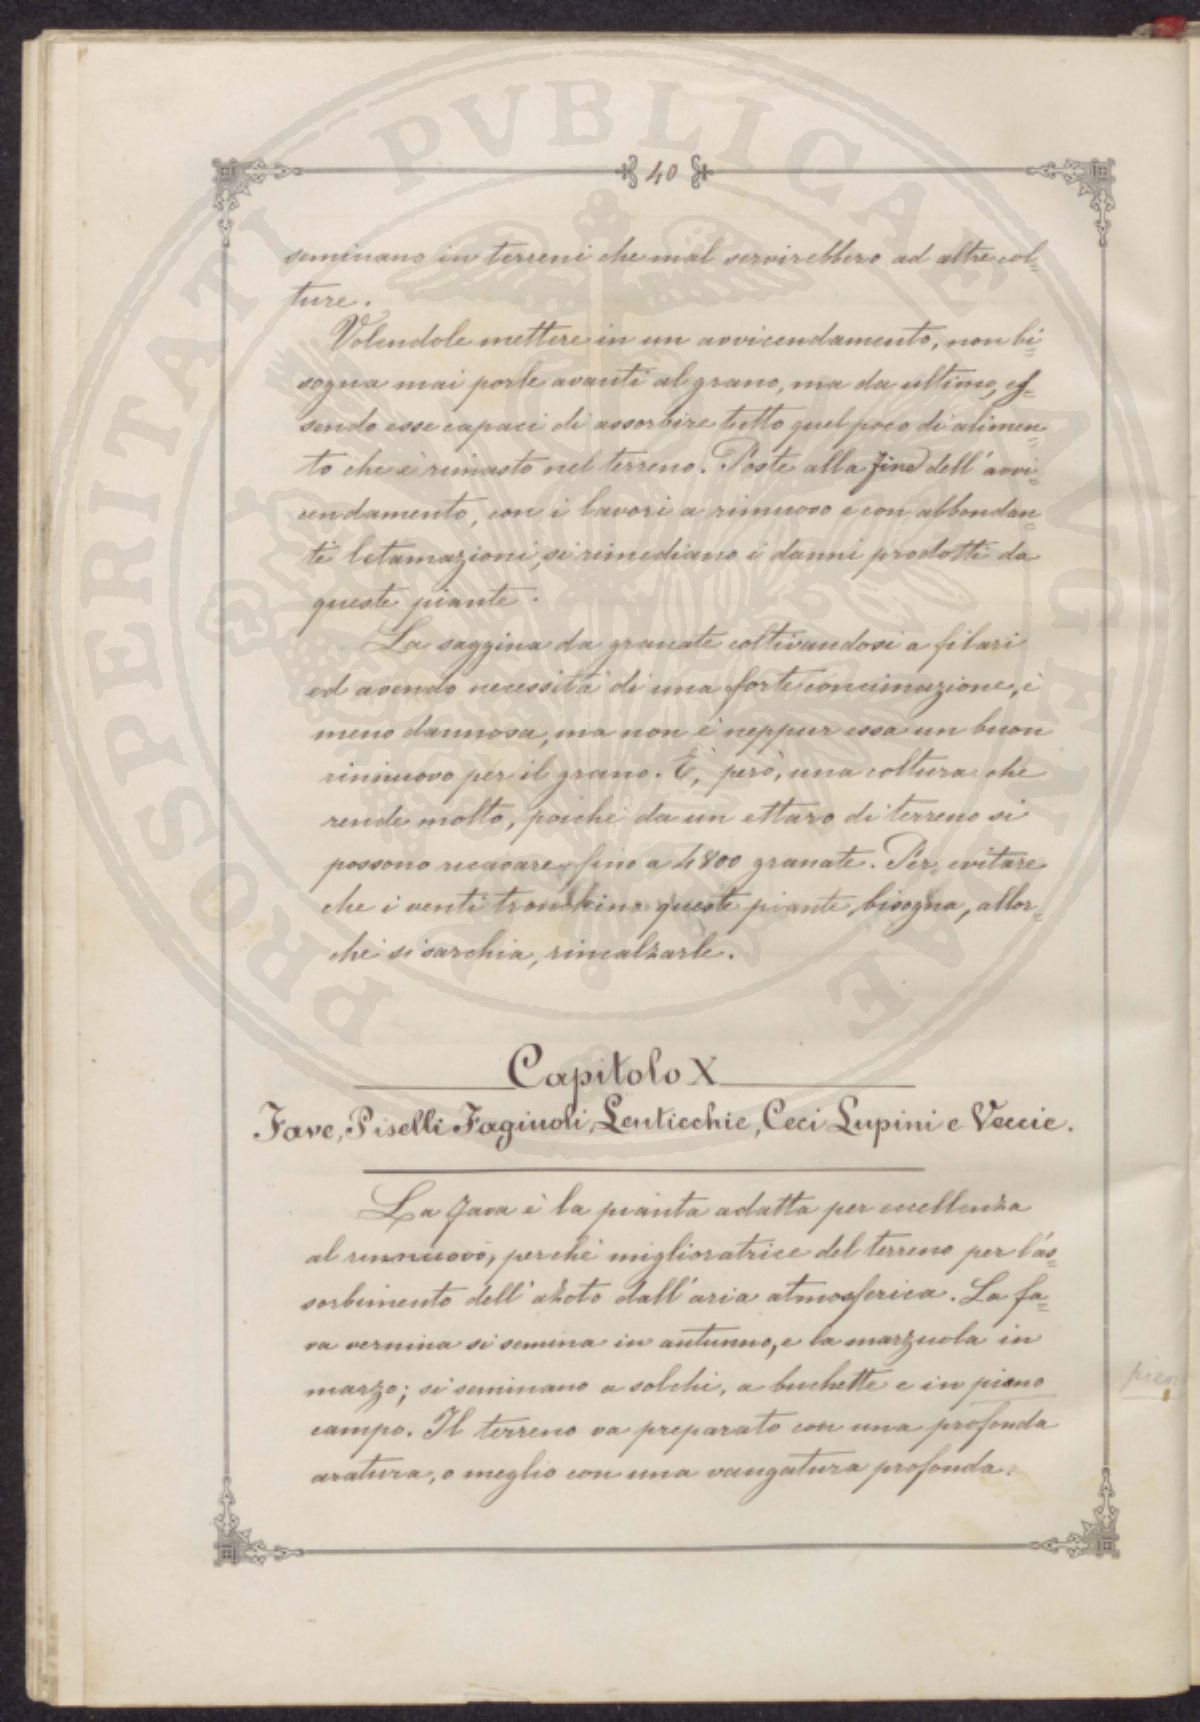 40
seminano in terreni che mal servirebbero ad altre col=
ture.
Volendole mettere in un avvicendamento, non bi=
sogna mai porle avanti al grano, ma da ultimo, es=
sendo esse capaci di assorbire tutto quel poco di alimen=
to che è rimasto nel terreno. Poste alla fine dell'avvi=
cendamento, con i lavori a rinnuovo e con abbondan=
ti letamazioni, si rimediano i danni prodotti da
queste piante.
La saggina da granate coltivandosi a filari
ed avendo necessità di una forte concimazione, è
meno dannosa, ma non è neppur essa un buon
rinnuovo per il grano. È, però, una coltura che
rende molto, poichè da un ettaro di terreno si
possono ricavare fino a 4800 granate. Per evitare
che i venti tronchino queste piante, bisogna, allor=
chè si sarchia, rincalzarle.
Capitolo X
Fave, Piselli Fagiuoli, Lenticchie, Ceci Lupini e Veccie.
La fava è la pianta adatta per eccellenza
al rinnuovo, perchè miglioratrice del terreno per l'as=
sorbimento dell'azoto dall'aria atmosferica. La fa=
va vernina si semina in autunno, e la marzuola in
marzo; si seminano a solchi, a buchette e in pieno
campo. Il terreno va preparato con una profonda
aratura, o meglio con una vangatura profonda.
PROSPERITATI PVBLICAE AVGENDAE